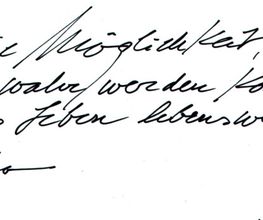 ie Möglichkeit,
wahr werden ka
s Leben lebensw